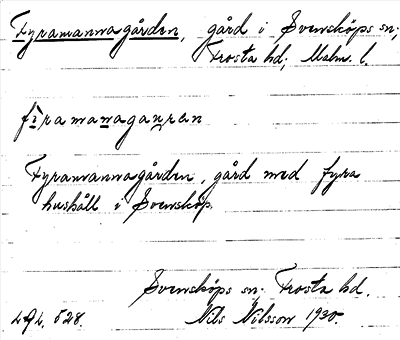 Fyramannagården, gård i Svensköps sn;
Frosta hd; Malm. l.
firamanagauren
Fyramannagården, gård med fyra
hushåll i Svensköp.
Svensköps sn. Frosta hd.
LAL. 528. Nils Nilsson 1930.